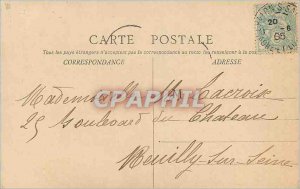 CARTE POSTALE
Tous les pays étrangers n'acceptent pas la correspondance au recto (se renseigner à la poste)
CORRESPONDANCE
ADRESSE
20 - 8
06
CPAPHIL.COM
Mademoiselle Lacroix
25 Boulevard du Chateau
Neuilly-sur-Seine